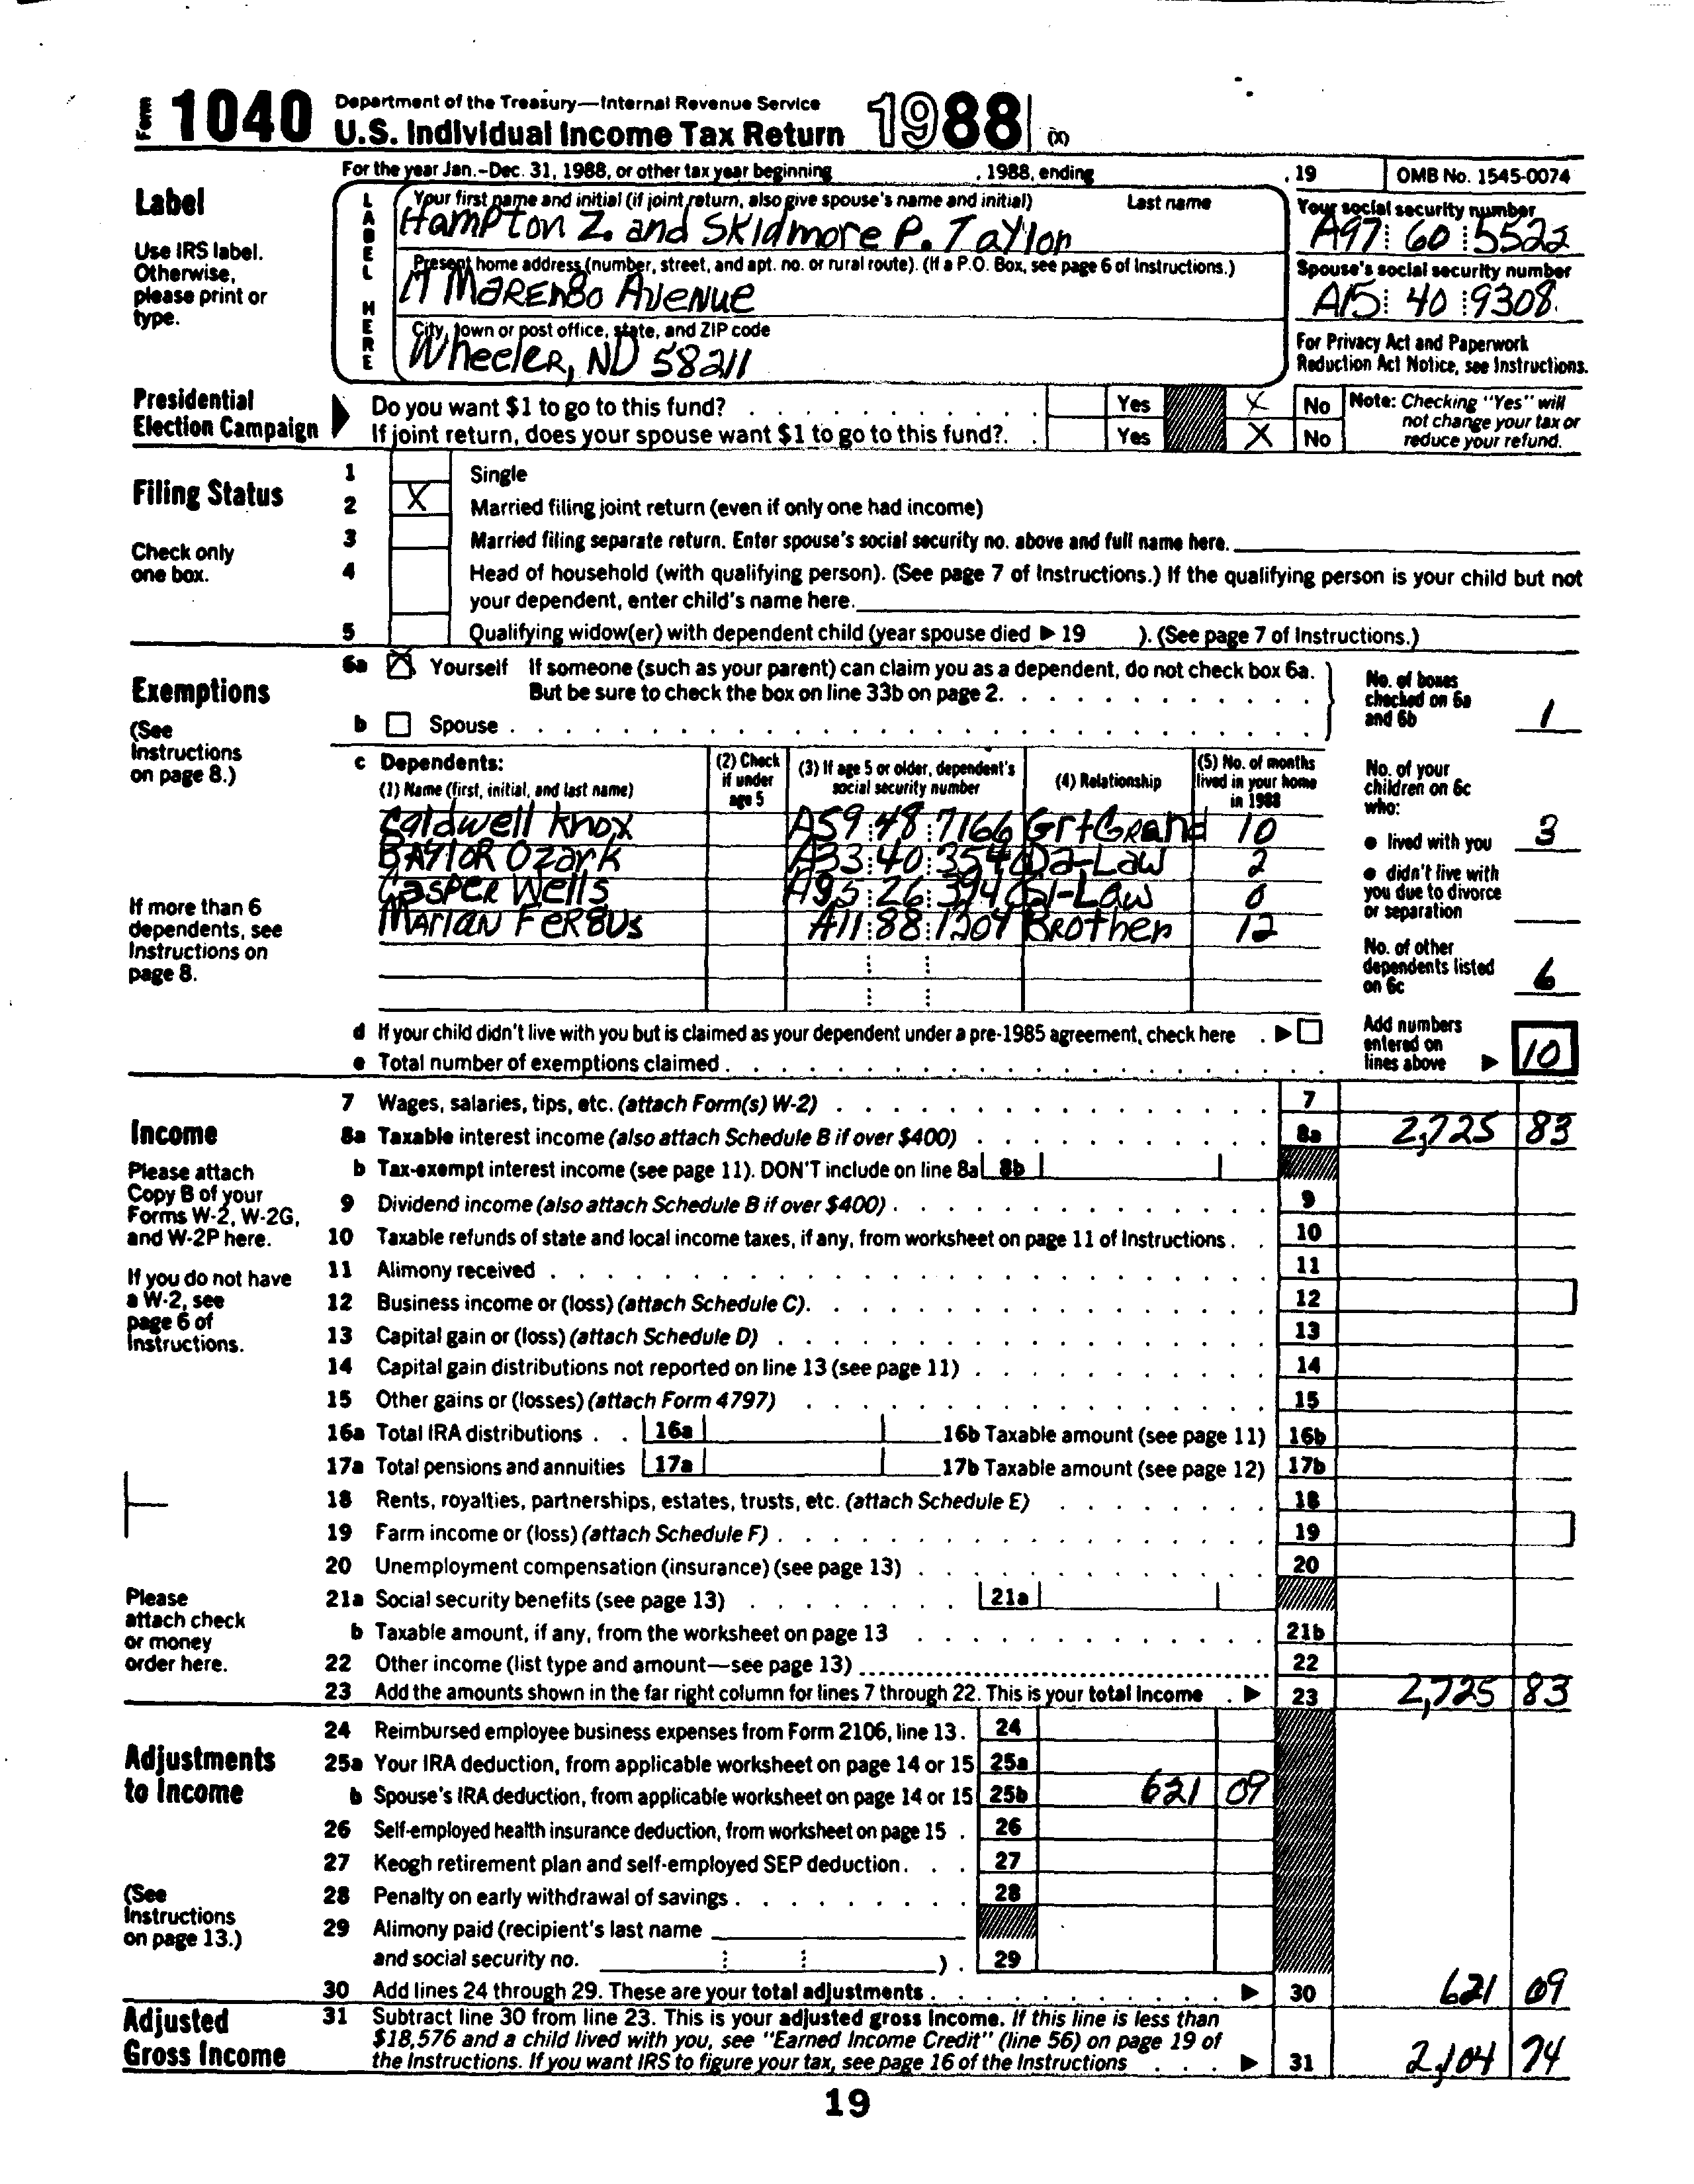 Form 1040 Department of the Treasury—Internal Revenue Service
U.S. Individual Income Tax Return 1988 (X)
For the year Jan.–Dec. 31, 1988, or other tax year beginning , 1988, ending , 19 OMB No. 1545-0074
Label
Use IRS label. Otherwise, please print or type.
LABEL HERE
Your first name and initial (if joint return, also give spouse's name and initial) Last name
Hampton Z. and Skidmore P. Taylor
Your social security number
A97 60 5522
Present home address (number, street, and apt. no. or rural route). (If a P.O. Box, see page 6 of Instructions.)
Marengo Avenue
Spouse's social security number
A15 40 9308
City, town or post office, state, and ZIP code
Wheeler, ND 58211
For Privacy Act and Paperwork Reduction Act Notice, see Instructions.
Presidential Election Campaign
Do you want $1 to go to this fund? Yes X No
If joint return, does your spouse want $1 to go to this fund? Yes X No
Note: Checking "Yes" will not change your tax or reduce your refund.
Filing Status
Check only one box.
1 Single
2 X Married filing joint return (even if only one had income)
3 Married filing separate return. Enter spouse's social security no. above and full name here.
4 Head of household (with qualifying person). (See page 7 of Instructions.) If the qualifying person is your child but not
your dependent, enter child's name here.
5 Qualifying widow(er) with dependent child (year spouse died ▶ 19 ). (See page 7 of Instructions.)
Exemptions
(See Instructions on page 8.)
6a X Yourself If someone (such as your parent) can claim you as a dependent, do not check box 6a.
But be sure to check the box on line 33b on page 2.
b Spouse
No. of boxes checked on 6a and 6b 1
c Dependents:
(1) Name (first, initial, and last name) (2) Check if under age 5 (3) If age 5 or older, dependent's social security number (4) Relationship (5) No. of months lived in your home in 1988
Caldwell Knox A59 48 7166 GrtGrand 10
Baylor Ozark A33 40 354 Da-Law 2
Casper Wells A95 26 394 -Law 0
Marian Fergus A11 88 1304 Brother 12
No. of your children on 6c who:
● lived with you 3
● didn't live with you due to divorce or separation
No. of other dependents listed on 6c 6
If more than 6 dependents, see Instructions on page 8.
d If your child didn't live with you but is claimed as your dependent under a pre-1985 agreement, check here ▶
e Total number of exemptions claimed
Add numbers entered on lines above ▶ 10
Income
Please attach Copy B of your Forms W-2, W-2G, and W-2P here.
If you do not have a W-2, see page 6 of Instructions.
Please attach check or money order here.
7 Wages, salaries, tips, etc. (attach Form(s) W-2) 7
8a Taxable interest income (also attach Schedule B if over $400) 8a 2,725 83
b Tax-exempt interest income (see page 11). DON'T include on line 8a 8b
9 Dividend income (also attach Schedule B if over $400) 9
10 Taxable refunds of state and local income taxes, if any, from worksheet on page 11 of Instructions 10
11 Alimony received 11
12 Business income or (loss) (attach Schedule C) 12
13 Capital gain or (loss) (attach Schedule D) 13
14 Capital gain distributions not reported on line 13 (see page 11) 14
15 Other gains or (losses) (attach Form 4797) 15
16a Total IRA distributions 16a 16b Taxable amount (see page 11) 16b
17a Total pensions and annuities 17a 17b Taxable amount (see page 12) 17b
18 Rents, royalties, partnerships, estates, trusts, etc. (attach Schedule E) 18
19 Farm income or (loss) (attach Schedule F) 19
20 Unemployment compensation (insurance) (see page 13) 20
21a Social security benefits (see page 13) 21a
b Taxable amount, if any, from the worksheet on page 13 21b
22 Other income (list type and amount—see page 13) 22
23 Add the amounts shown in the far right column for lines 7 through 22. This is your total income ▶ 23 2,725 83
Adjustments to Income
(See Instructions on page 13.)
24 Reimbursed employee business expenses from Form 2106, line 13. 24
25a Your IRA deduction, from applicable worksheet on page 14 or 15 25a
b Spouse's IRA deduction, from applicable worksheet on page 14 or 15 25b 621 09
26 Self-employed health insurance deduction, from worksheet on page 15 26
27 Keogh retirement plan and self-employed SEP deduction 27
28 Penalty on early withdrawal of savings 28
29 Alimony paid (recipient's last name
and social security no. ) 29
30 Add lines 24 through 29. These are your total adjustments ▶ 30 621 09
Adjusted Gross Income
31 Subtract line 30 from line 23. This is your adjusted gross income. If this line is less than
$18,576 and a child lived with you, see "Earned Income Credit" (line 56) on page 19 of
the Instructions. If you want IRS to figure your tax, see page 16 of the Instructions ▶ 31 2,104 74
19